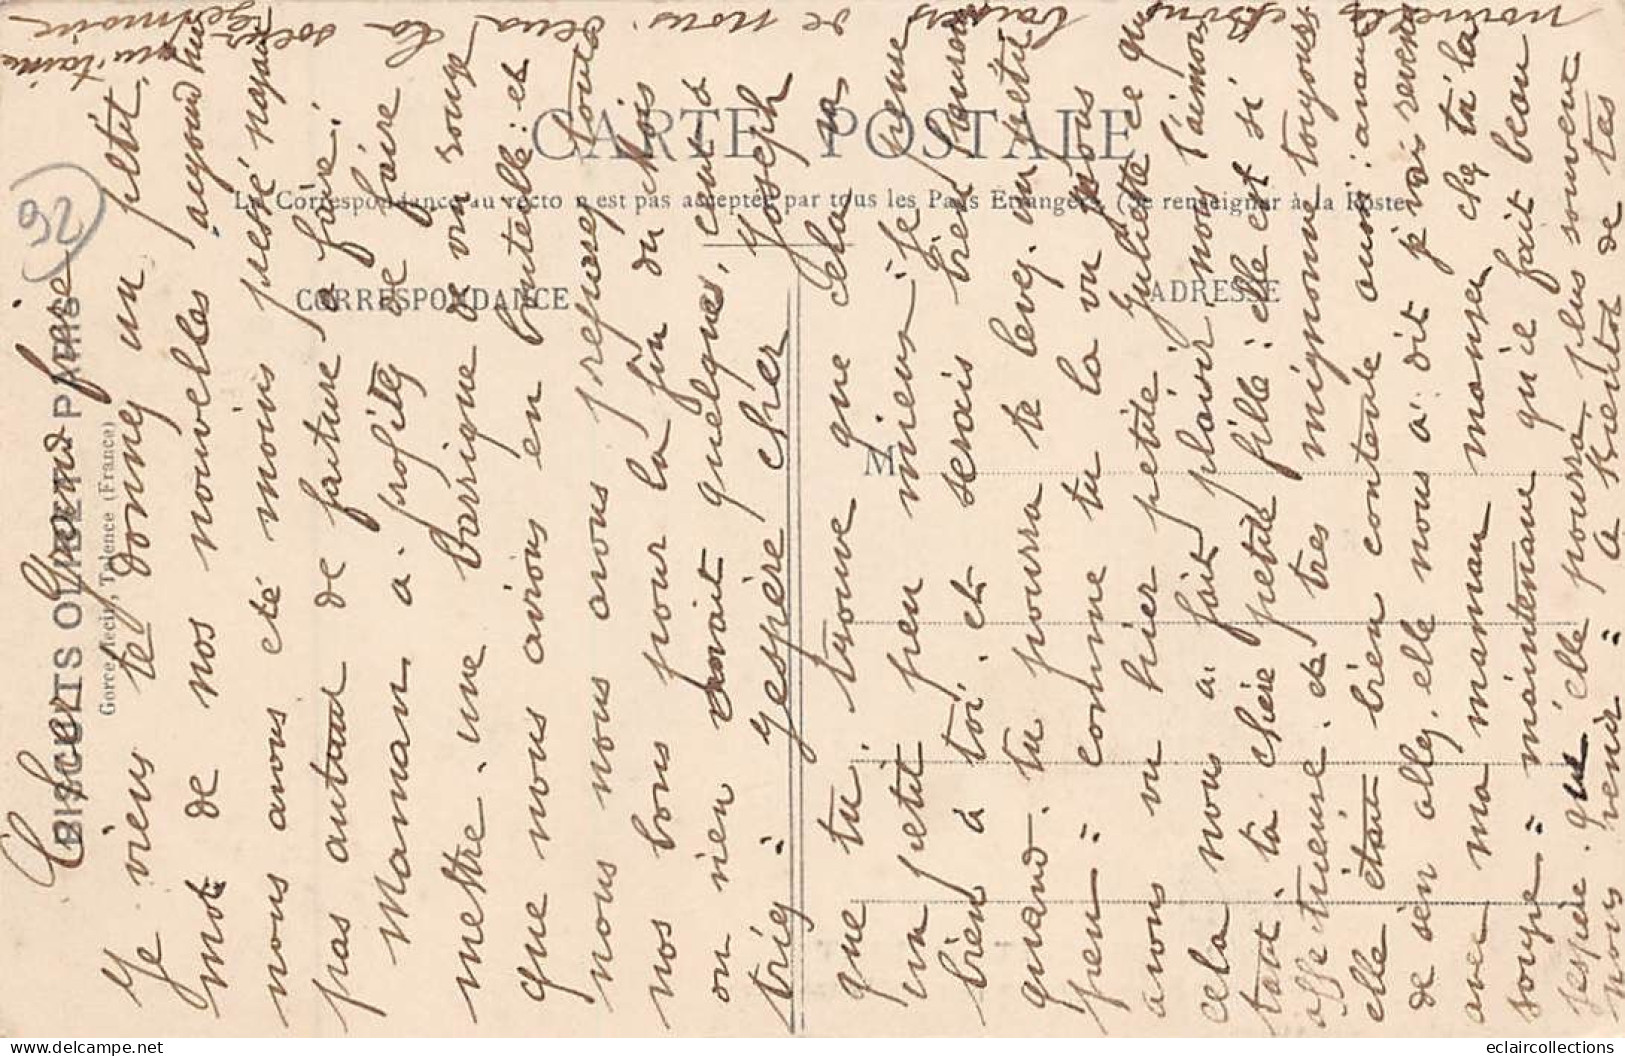 CARTE POSTALE
La Correspondance au recto n'est pas acceptée par tous les Pays Étrangers. (Se renseigner à la Poste
CORRESPONDANCE
ADRESSE
M
BISCUITS OLIBET PARIS
Gorce, Talence (France)
26
Cheurs Grand frère
Je viens te donnez un petit,
mot de nos nouvelles aujourd'hui
nous avons eté moins pressé
pas autant de facture a faire.
Maman a profitez de faire
mettre une barrique de vin rouge
que nous avions en bouteille: et
nous nous avons presque toute
nos bons pour la fin du mois
on vien quelques, cent à
triez = Jespère cher Joseph
que tu trouve que cela va
un petit peu mieux = Je pense
bien à toi et serais bien heureuse
quand tu pourra te levez un petit
peu = comme tu la vu nous
avons vu hier petite Juliette ce que
cela nous a fait plaisir nous l'aimons
tant ta chère petite fille: elle est si
affetueuse et tres mignonne toujours
elle était bien contente aussi: avant
de sen allez, elle nous a dit je vais revenir
avec ma maman manger chez ta la
soupe = maintenant qu'ie fait beau
jespère que elle pourra plus souvent
nous venir = A Bientot de tes
nouvelles bons baisers de nous. Ta soeur
Germaine